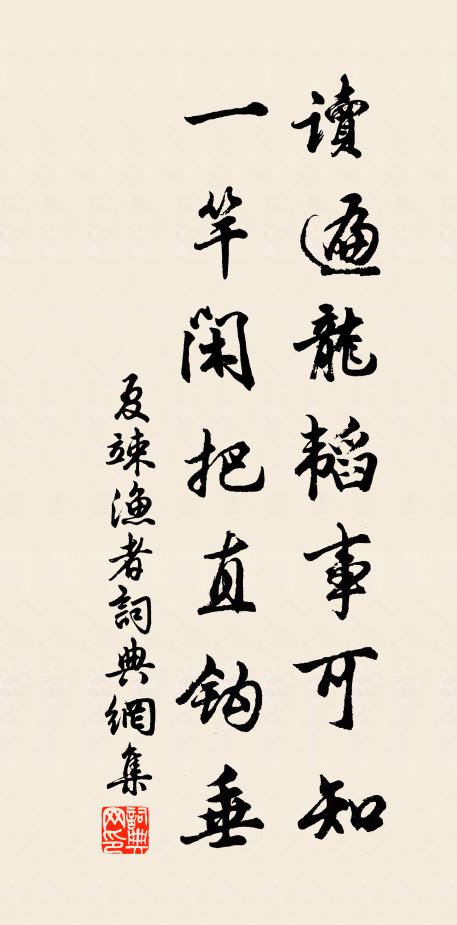 讀遍龍韜事可知
一竿閑把直鈎垂
夏竦漁者詞典網集
詞典网印